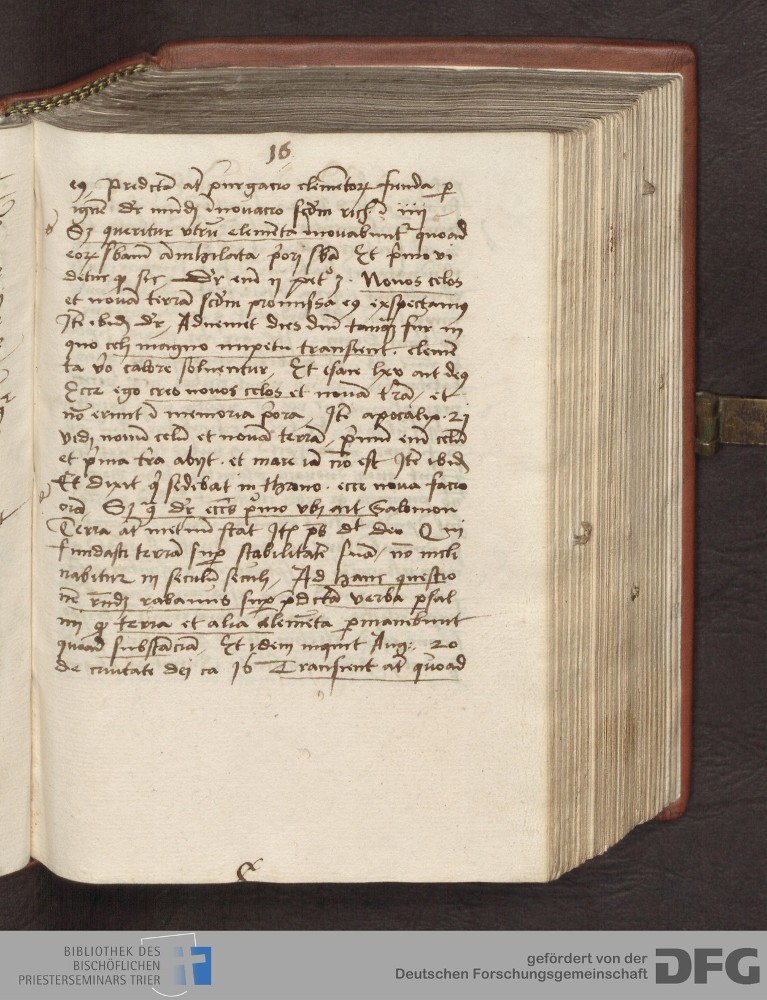 16
eius Predicta aut purgacio elementorum fienda per
igne dr mundi innovacio scdm rich i iiii
Sz queritur utru elementa innovabuntur quoad
eorum sbam annihilata priori sba Et primo vi
detur q sic Dr eni ii pet 3 Novos celos
et nova terra scdm promissa eius expectamus
Ite ibide dr Adveniet dies dni tanq fur in
quo celi magno impetu transient elemen
ta vo calore solventur Et esaie lxv ait deus
Ecce ego creo novos celos et nova tra et
no erunt i memoria priora Ite apocalip 21
vidi novu celu et nova terra primu eni celu
et prima tra abijt et mare ia no est Ite ibide
Et dixit q sedebat in throno ecce nova facio
oia Sz q dr eccs primo ubi ait Salomon
Terra at in eternu stat Ite ps dt deo Qui
fundasti terra sup stabilitate sua no incli
nabitur in seculu seculi Ad hanc questio
ne rndz rabanus sup pdcta verba psal
mi q terra et alia elementa permanebunt
quoad substancia Et idem inquit Aug 20
de civitate dei ca 16 Transient at quoad
BIBLIOTHEK DES
BISCHÖFLICHEN
PRIESTERSEMINARS TRIER
gefördert von der
Deutschen Forschungsgemeinschaft
DFG